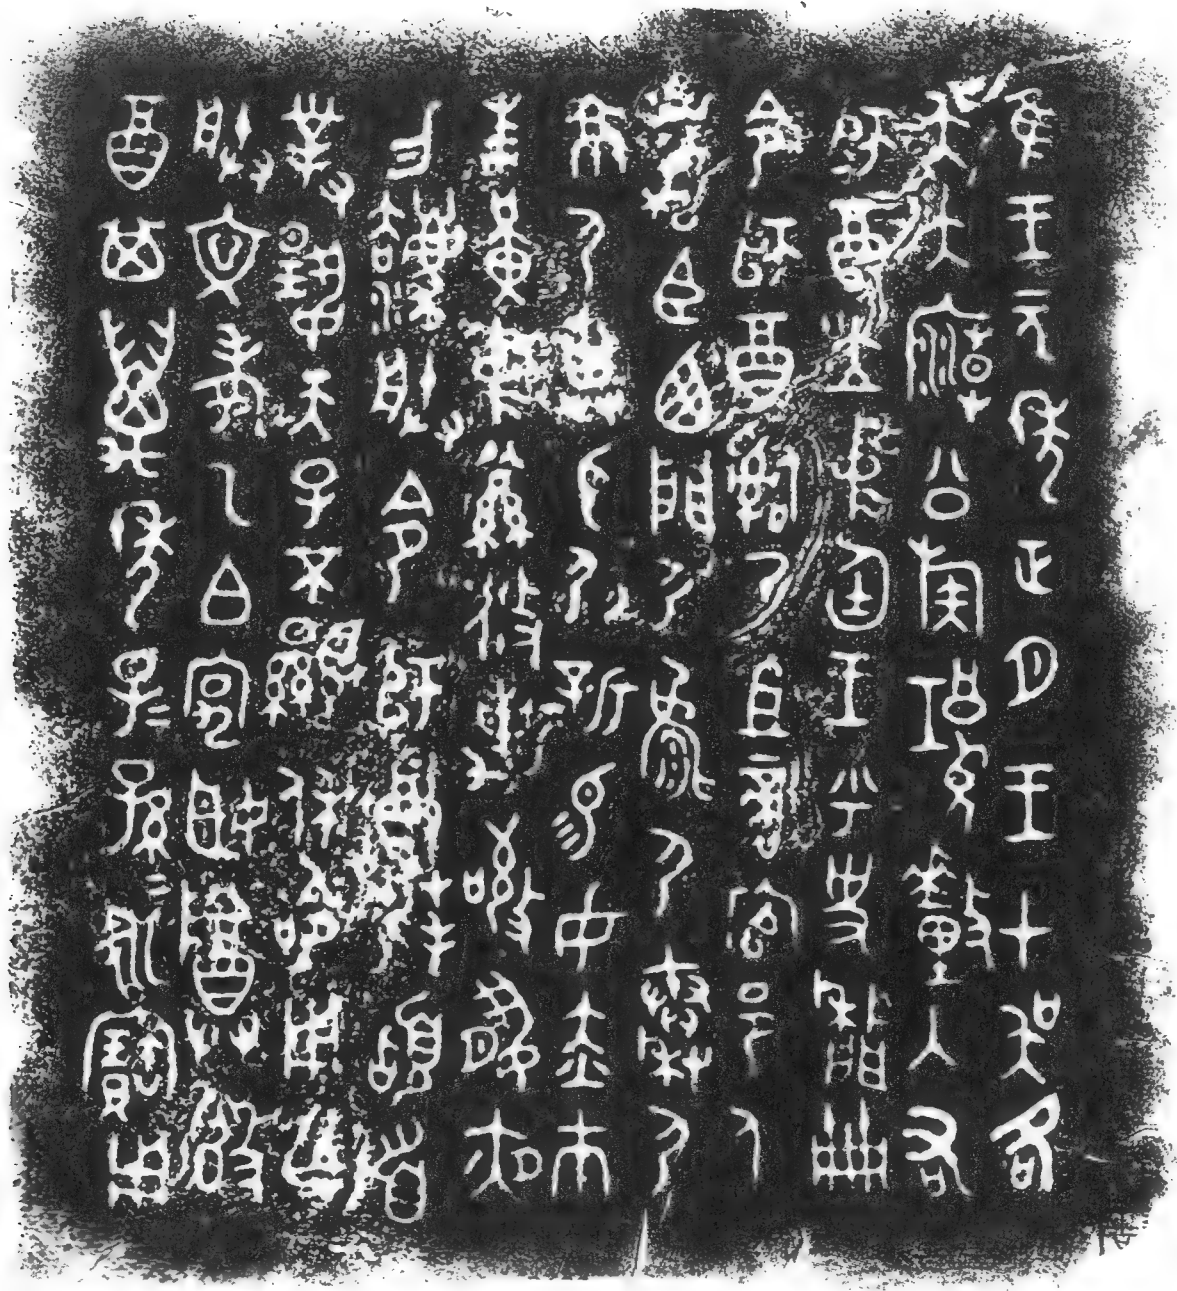 隹王元年正月王才吳各
吳大廟公族𤲞釐入右
師酉立中廷王乎史墻冊
命師酉𤔲乃且啻官邑人
虎臣西門尸𩫨尸秦尸
京尸畀身尸新易女赤市
朱黃中絅攸勒敬夙夜
勿灋朕令師酉拜𩒨首
對揚天子不顯休命用乍
朕文考乙白宄姬尊𣪘
酉其萬年子子孫孫永寶用